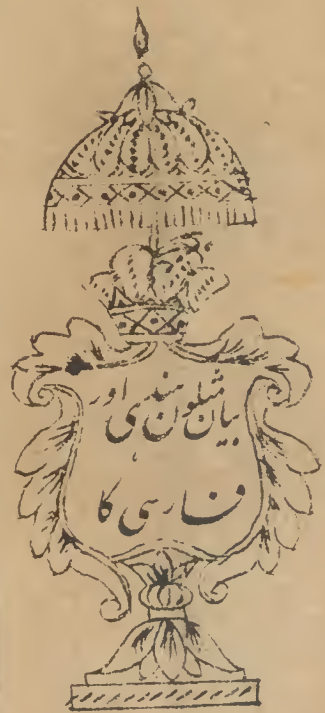 بیان مثلون ہندی اور
فارسی کا